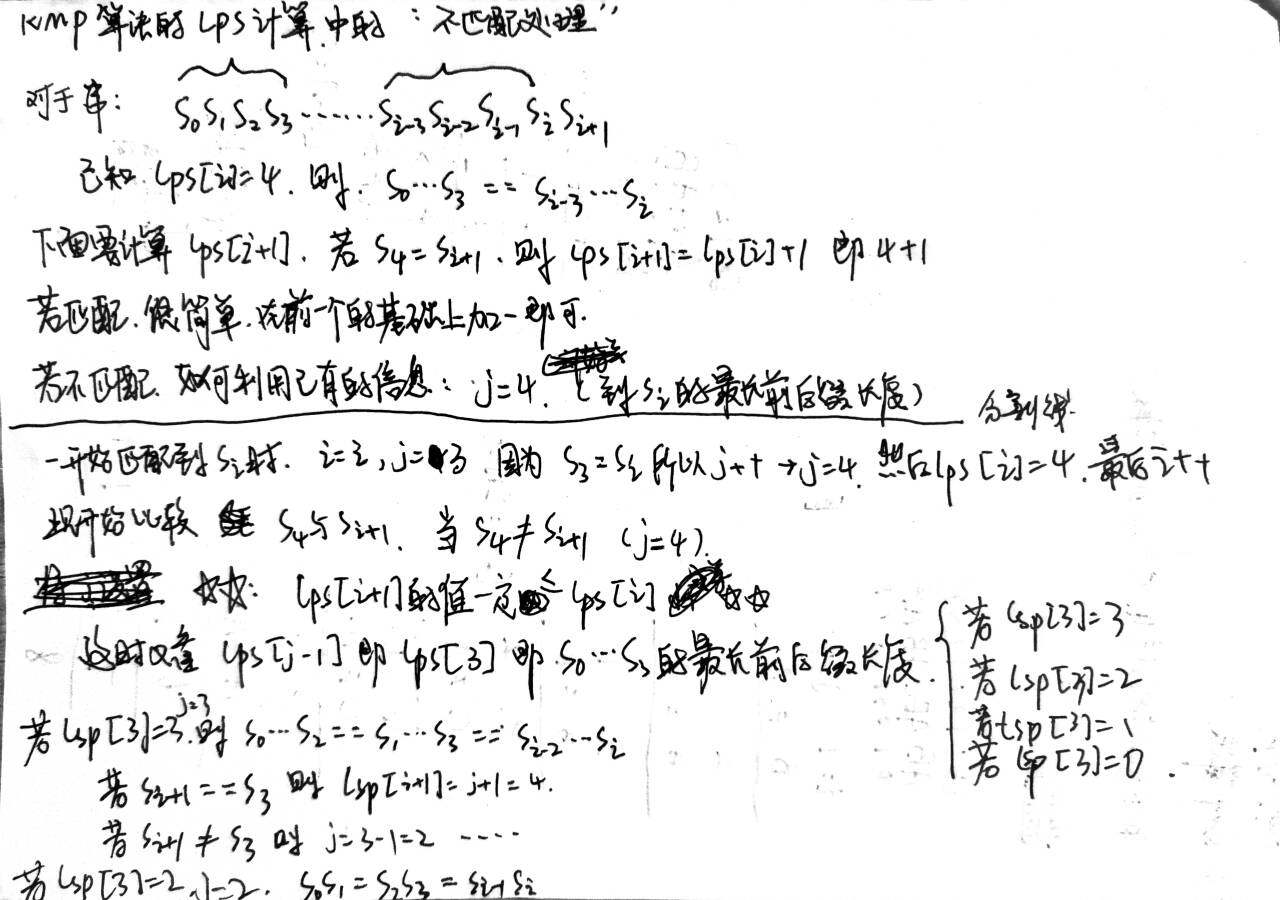 KMP算法的LPS计算中的：不匹配处理”
对于串： S₀S₁S₂S₃……Sᵢ₋₃Sᵢ₋₂Sᵢ₋₁SᵢSᵢ₊₁
已知 lps[i]=4. 则. S₀…S₃ == Sᵢ₋₃…Sᵢ
下面要计算 lps[i+1]. 若 S₄=Sᵢ₊₁. 则 lps[i+1]=lps[i]+1 即 4+1
若匹配.很简单.在前一个的基础上加一即可.
若不匹配. 如何利用已有的信息： j=4. (到Sᵢ的最长前后缀长度)
分割线
一开始匹配到Sᵢ时. i=i, j=3 因为 S₃=Sᵢ 所以 j++ → j=4. 然后lps[i]=4. 最后i++
现开始比较 S₄与Sᵢ₊₁. 当 S₄≠Sᵢ₊₁ (j=4).
☆☆: lps[i+1]的值一定≤ lps[i] ☆☆
这时 查 lps[j-1] 即 lps[3] 即 S₀…S₃的最长前后缀长度.
若 lsp[3]=3
若 lsp[3]=2
若 lsp[3]=1
若 lsp[3]=0.
若 lsp[3]=3 j=3 .则 S₀…S₂ == S₁…S₃ == Sᵢ₋₂…Sᵢ
若 Sᵢ₊₁==S₃ 则 lsp[i+1]=j+1=4.
若 Sᵢ₊₁≠S₃ 则 j=3-1=2 ……
若 lsp[3]=2, j=2. S₀S₁=S₂S₃=Sᵢ₋₁Sᵢ